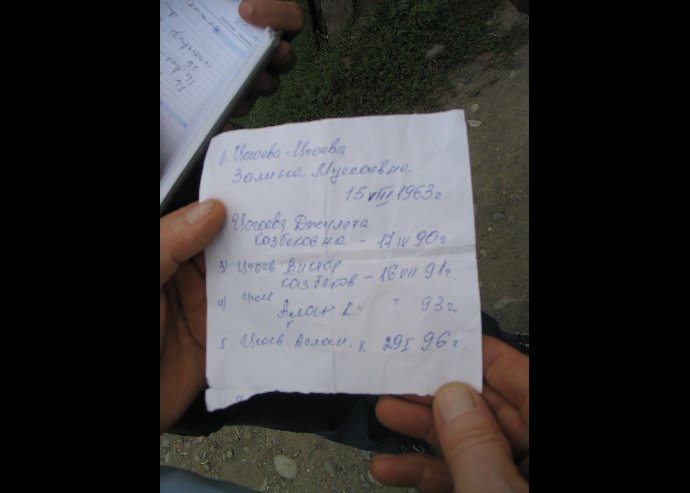 1. Цгоева-Цгоева
Залина Муссаевна
15 VIII 1963г
Цгоева Джулета
казбековна - 17 IV 90г
3) Цгоев Виктор
казбеков - 16 VII 91г.
4) Цгоев
Алан К. " 93г.
5 Цгоев Аслан. к. 29 I 96г.